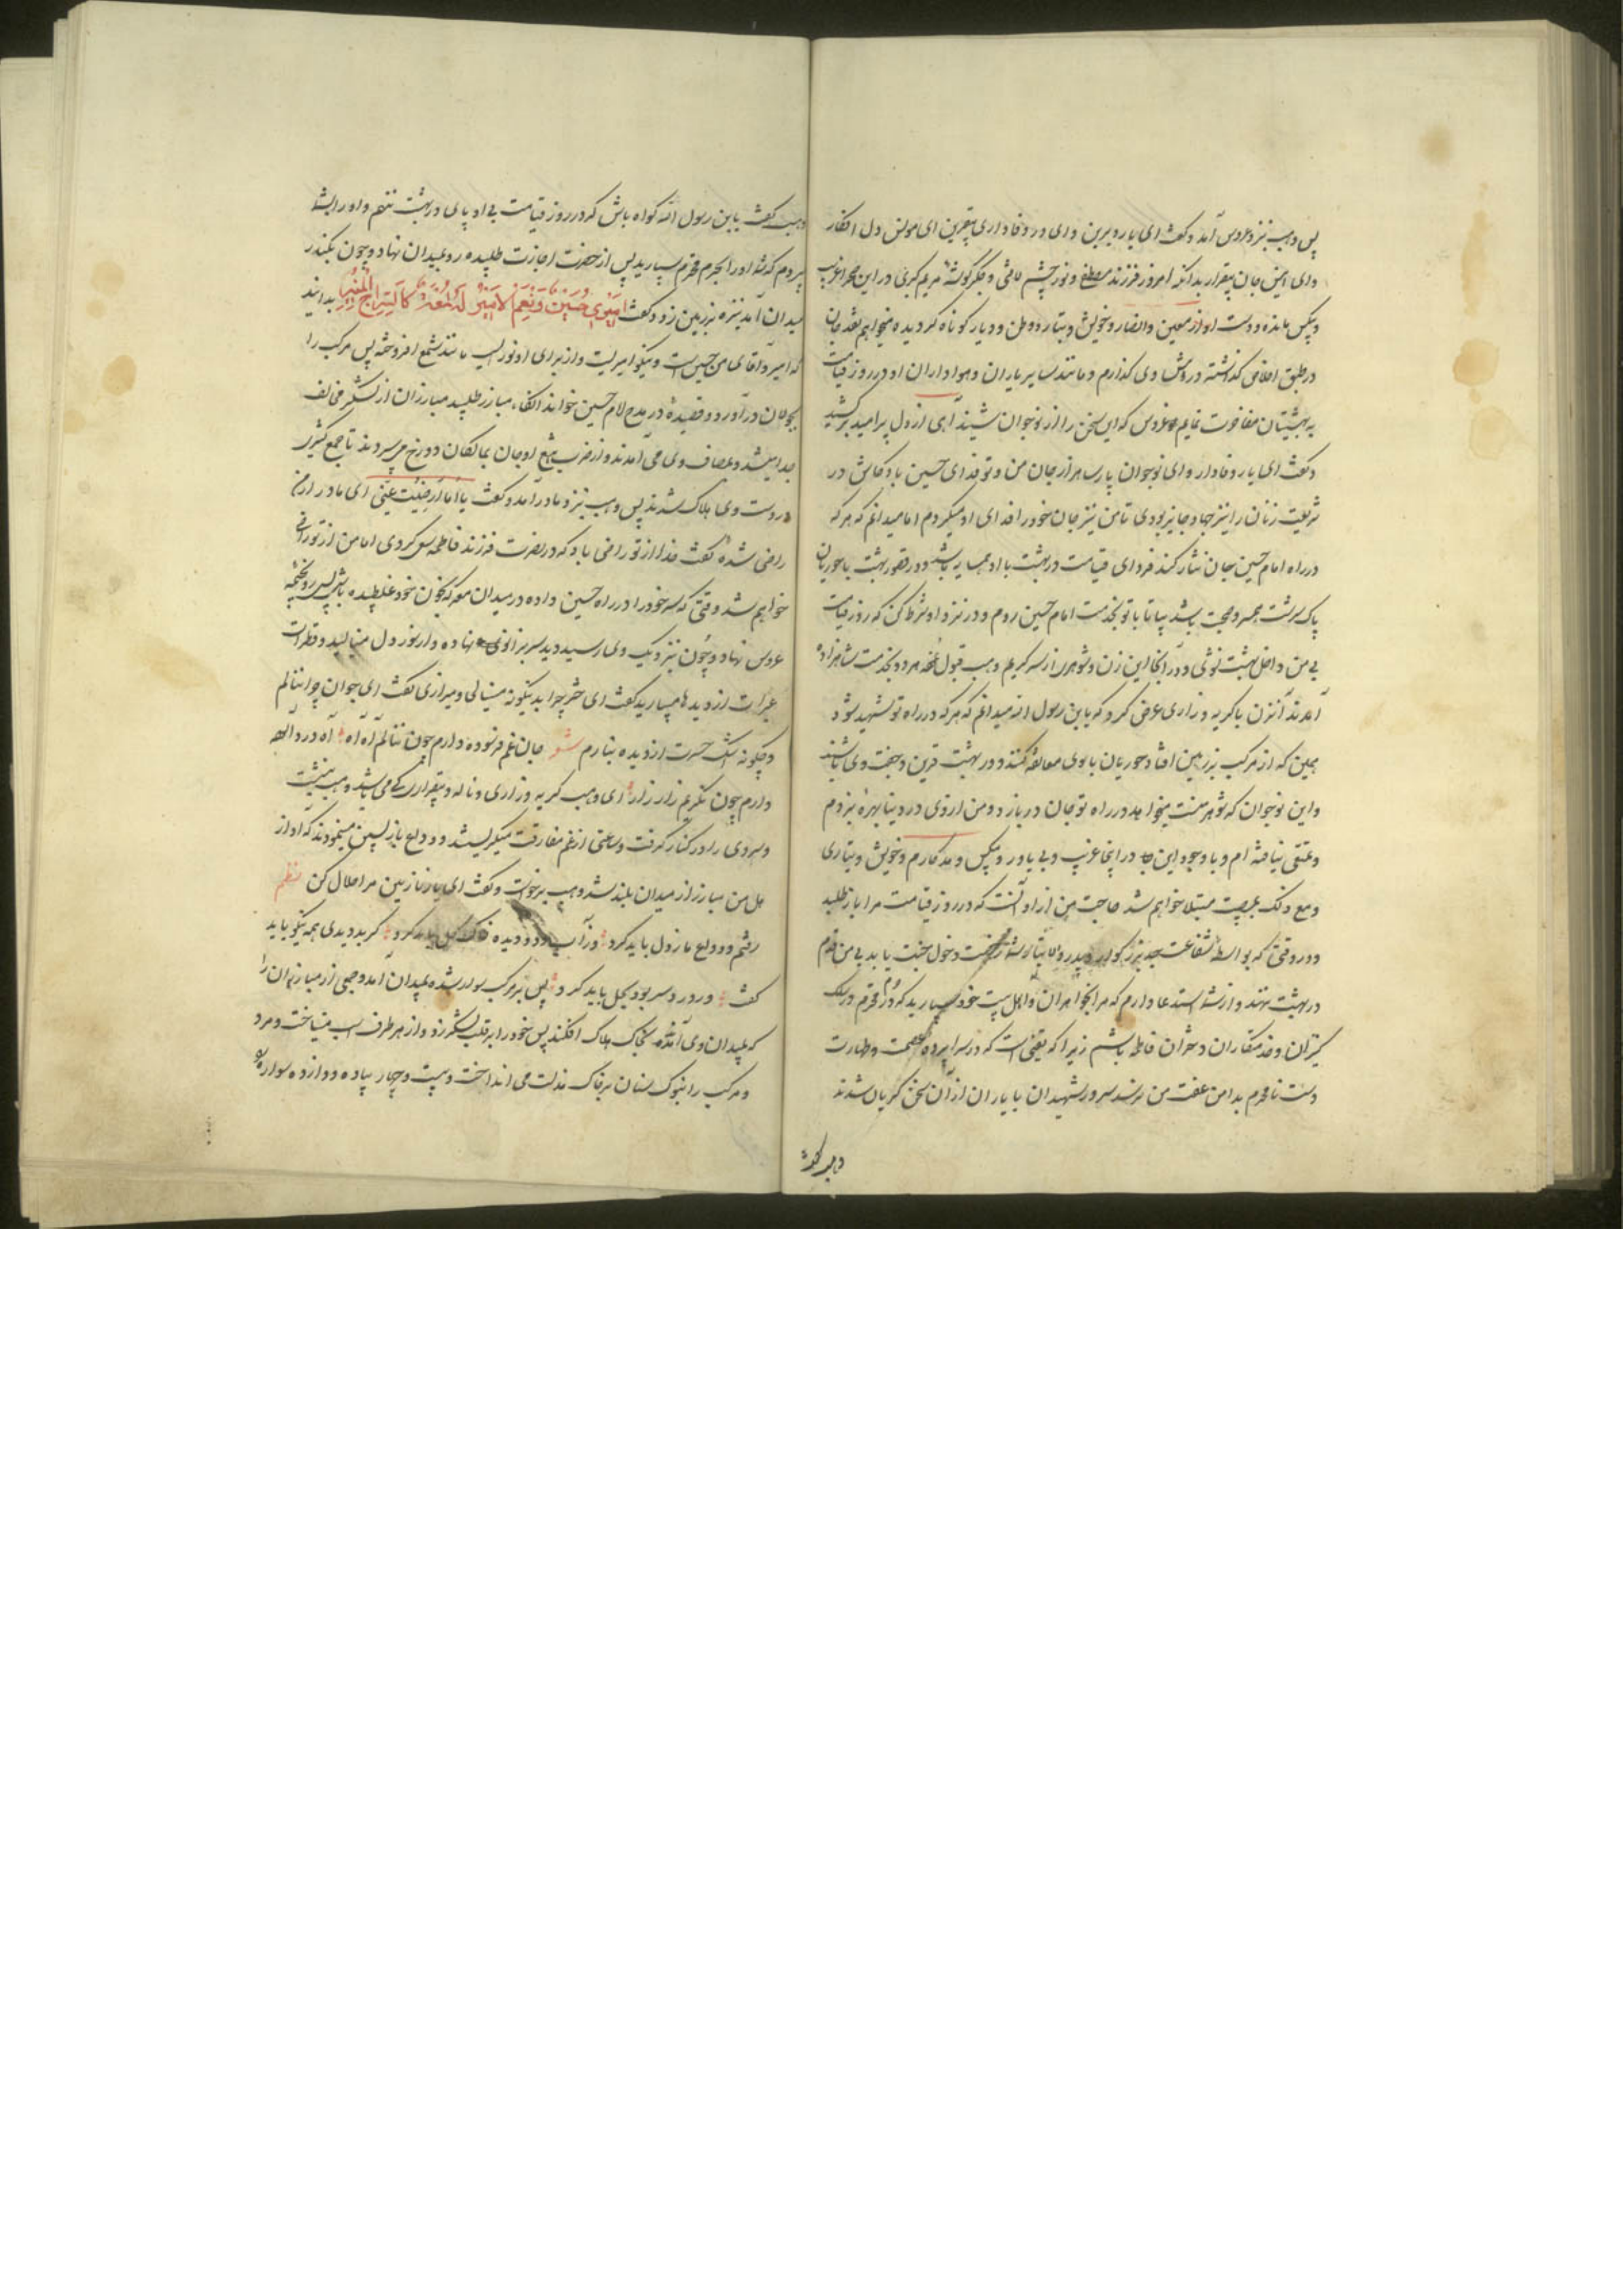 پس وهب نزد عروس آمد و گفت ای یار دیرین و ای در وفاداری بیقرین ای مونس دل افکار
و ای انیس جان بیقرار بدانکه امروز فرزند مصطفی و نور چشم مرتضی و جگرگوشه مریم کبری در این صحرا غریب
و بیکس مانده و دست او از معین و انصار و خویش و تبار و وطن و دیار کوتاه کردیده میخواهم نقد جان
در طبق اخلاص گذاشته در وی گذارم و مانند سایر یاران و هواداران او در روز قیامت
به بهشتیان مفاخرت نمایم عروس که این سخن را از نوجوان شنید آهی از دل پر امید برکشید
و گفت ای یار وفادار و ای نوجوان هزار جان من و تو فدای حسین باد و کاش در
شریعت زنان را نیز جهاد جایز بودی تا من نیز جان خود را فدای او میکردم اما میدانم که هر که
در راه امام حسین جان نثار کند فردای قیامت در بهشت با او همسایه باشد و در قصور بهشت با حوریان
پاک سرشت همسر و صحبت باشد بیا تا با تو بخدمت امام حسین روم و در نزد او شرط کن که روز قیامت
بی من داخل بهشت نشوی و در آنجا این زن و شوهر از سر کریم وهب قبول نموده هر دو بخدمت شاهزاده
آمدند آنزن با گریه و زاری عرض کرد که یابن رسول الله میدانم که هر که در راه تو شهید شود
همین که از مرکب بر زمین افتاد حوریان با وی معانقه کنند و در بهشت قرین و جفت وی باشند
و این نوجوان که شوهر منست میخواهد در راه تو جان در بازد و من از وی در دنیا بهره نبردم
و تمتعی نیافته ام و با وجود این در اینجا غریب و بی یاور و بیکس و مددکارم و خویش و تباری
و مع ذلک بمصیبت مبتلا خواهم شد حاجت من از او آنست که در روز قیامت مرا باز طلبد
و در وقتی که بواسطه شفاعت جد بزرگوار و پدر والا تبار شما رخصت دخول جنت یابد بی من قدم
در بهشت ننهد و از شما استدعا دارم که مرا بخواهران و اهل بیت خود سپارید که در حرم محترم در سلک
کنیزان و خدمتکاران دختران فاطمه باشم زیرا که یقینی است که در سراپرده عصمت و طهارت
دست نامحرم بدامن عفت من نرسد سرور شهیدان با یاران از آن سخن گریان شدند
وهب گفت
وهب گفت یابن رسول الله گواه باش که در روز قیامت بی او پای در بهشت ننهم و او را بشما
سپردم که شما او را بحرم محترم سپارید پس از حضرت اجازت طلبیده رو بمیدان نهاد و چون بکنار
میدان آمد نیزه بر زمین زد و گفت امیری حسین و نعم الامیر له لمعة کالسراج المنیر بدانید
که امیر و آقای من حسین است و نیکو امیریست و از برای او نوریست مانند شمع افروخته پس مرکب را
بجولان درآورد و قصیدهٔ در مدح امام حسین خواند آنگاه مبارز طلبید مبارزان از لشکر مخالف
جدا میشد و بمصاف وی می آمدند و از ضرب تیغ او جان بمالکان دوزخ می سپردند تا جمع کثیری
در دست وی هلاک شدند پس وهب نزد مادر آمد و گفت یا اماه ارضیت عنی ای مادر از من
راضی شدهٔ گفت خدا از تو راضی باد که در نصرت فرزند فاطمه سعی کردی اما من از تو راضی
خواهم شد وقتی که سر خود را در راه حسین داده در میدان معرکه بخون خود غلطیده باشی پس رو بخیمه
عروس نهاد و چون نزدیک وی رسید دید سر بزانوی نهاده و از سوز دل مینالید و قطرات
عبرات از دیدها میبارید گفت ای دختر چرا بدینگونه مینالی و میزاری گفت ای جوان چرا ننالم
و چگونه اشک حسرت از دیده نبارم شعر جان غم فرسوده دارم چون ننالم آه آه آه درد آلوده
دارم چون نگریم زار زار ای وهب گریه و زاری و ناله و بیقراری می باشد وهب بنشست
و سر وی را در کنار گرفت و ساعتی از غم مفارقت میگریستند و وداع بازپسین مینمودند که آواز
هل من مبارز از میدان بلند شد وهب برخواست و گفت ای یار نازنین مرا حلال کن نظم
رفتم و وداع ما ز دل باید کرد وز آب دو دیده خاک گل باید کرد گر بد دیدی همه نیکو باید
گفت ور درد سر بود بحل باید کرد پس بر مرکب سوار شده بمیدان آمد و جمعی از مبارزان را
که بمیدان وی آمدند بخاک هلاک افکند پس خود را بر قلب لشکر زد و از هر طرف اسب میتاخت و مرد
و مرکب را بنوک سنان بر خاک مذلت می انداخت و بیست و چهار پیاده و دوازده سواره